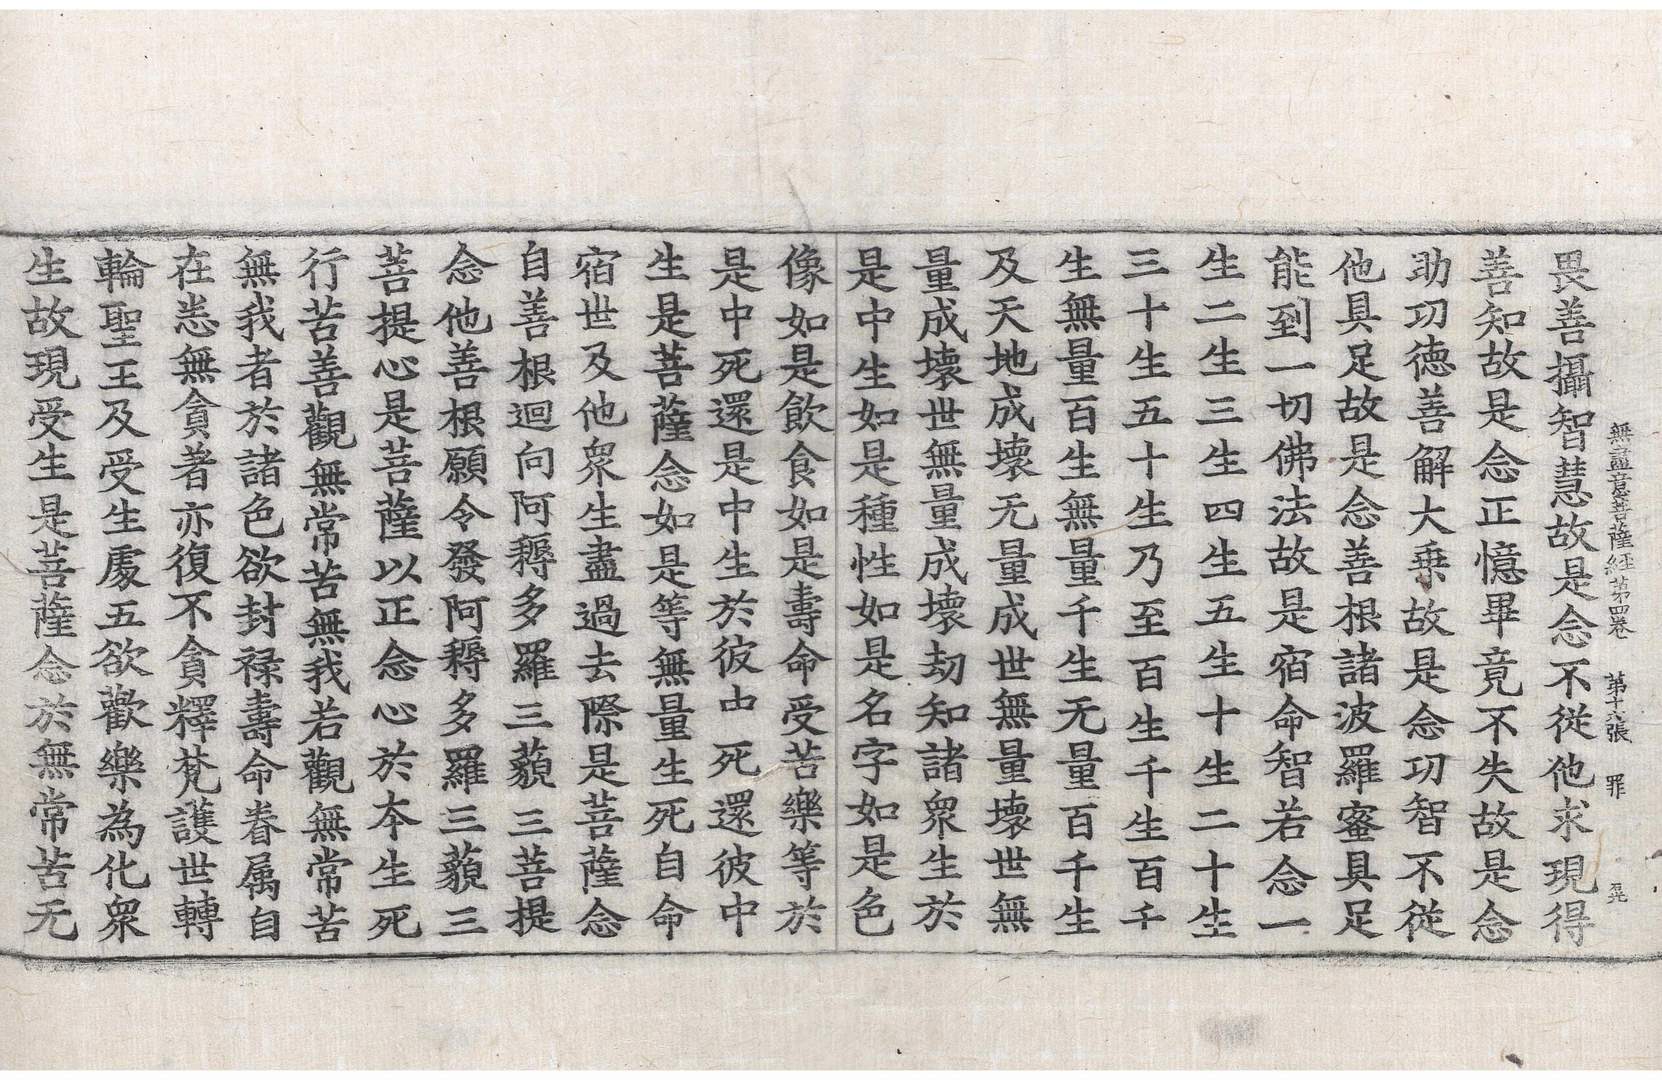 無盡意菩薩經第四卷　第十六張　罪
畏善攝智慧故是念不從他求現得
善知故是念正憶畢竟不失故是念
助功德善解大乗故是念功智不從
他具足故是念善根諸波羅蜜具足
能到一切佛法故是宿命智若念一
生二生三生四生五生十生二十生
三十生五十生乃至百生千生百千
生無量百生無量千生无量百千生
及天地成壞无量成世無量壞世無
量成壞世無量成壞劫知諸衆生於
是中生如是種性如是名字如是色
像如是飲食如是壽命受苦樂等於
是中死還是中生於彼中死還彼中
生是菩薩念如是等無量生死自命
宿世及他衆生盡過去際是菩薩念
自善根迴向阿耨多羅三藐三菩提
念他善根願令發阿耨多羅三藐三
菩提心是菩薩以正念心於夲生死
行苦善觀無常苦無我若觀無常苦
無我者於諸色欲封禄壽命眷属自
在恣無貪者亦復不貪釋梵護世轉
輪聖王及受生處五欲歡樂為化衆
生故現受生是菩薩念於無常苦无